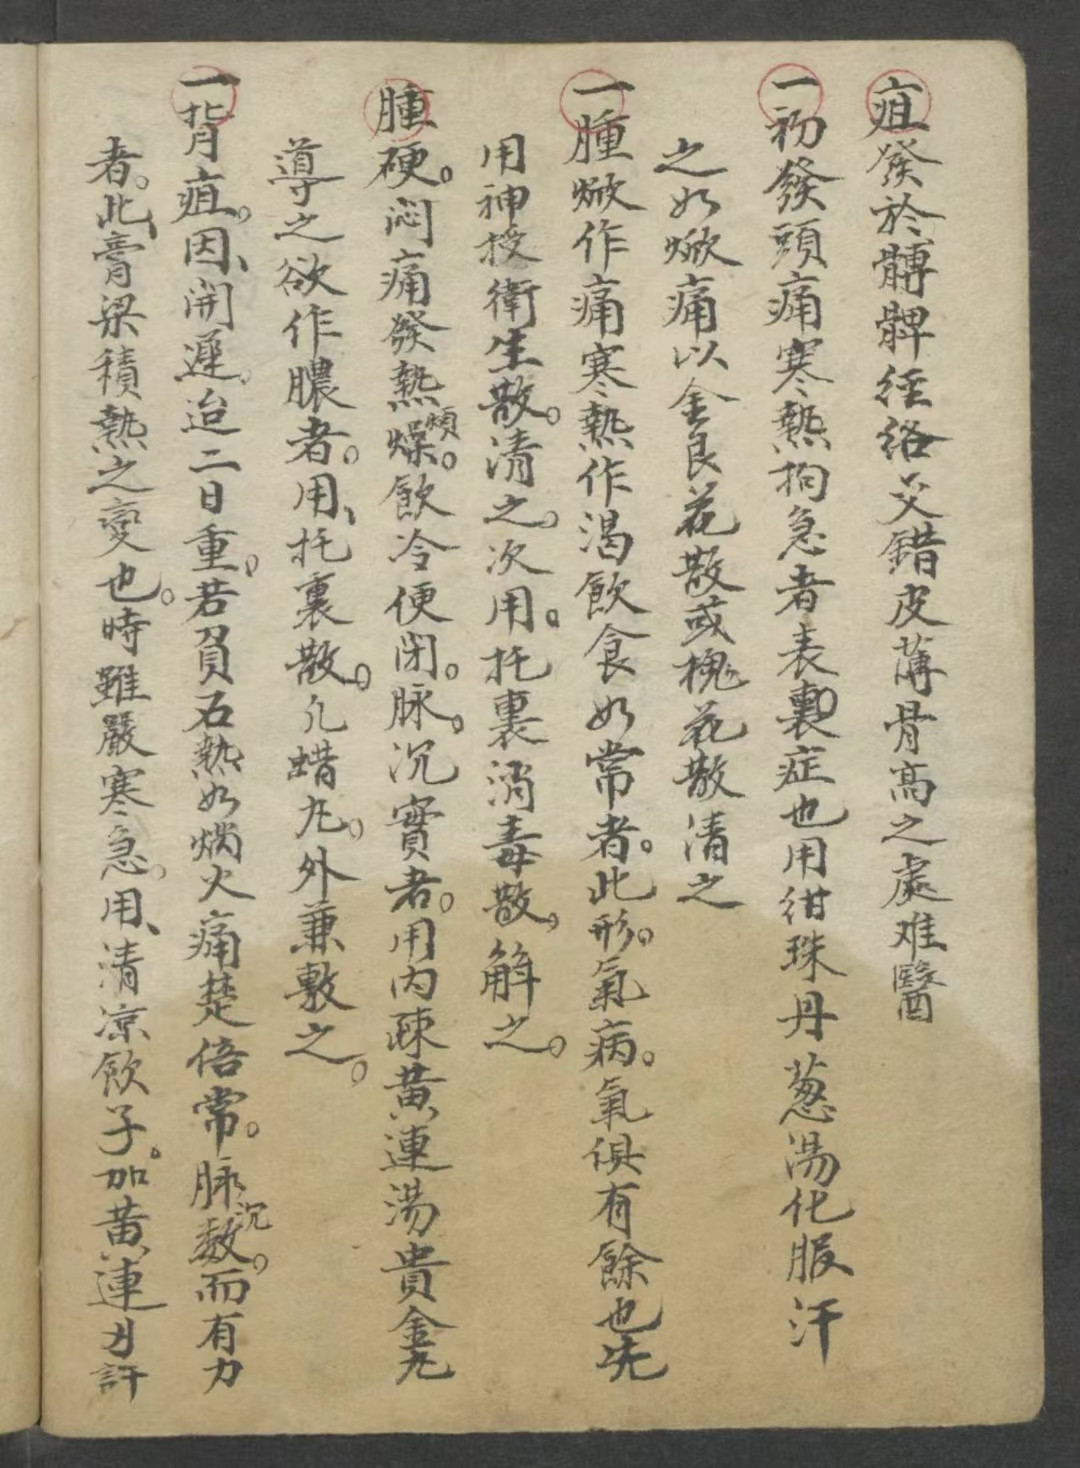 疽發於髆髀経絡交錯皮薄骨高之處难醫
一初發頭痛寒熱拘急者表裏症也用紺珠丹葱湯化服汗
之如焮痛以金艮花散或槐花散清之
一腫焮作痛寒熱作渴飲食如常者。此形。氣病。氣俱有餘也先
用神授衛生散。清之。次用。托裏消毒散。解之。
腫硬。悶痛發熱煩燥。飲冷便閉。脉。沉實者。用内疎黄連湯貴金丸
導之欲作膿者。用、托裏散。凢蜡丸。外兼敷之。
一背疽。因、開遲。迨二日重。若負石熱如焫火痛楚倍常。脉沉数。而有力
者。此膏梁積熱之変也。時雖嚴寒急。用、清凉飲子。加黄連